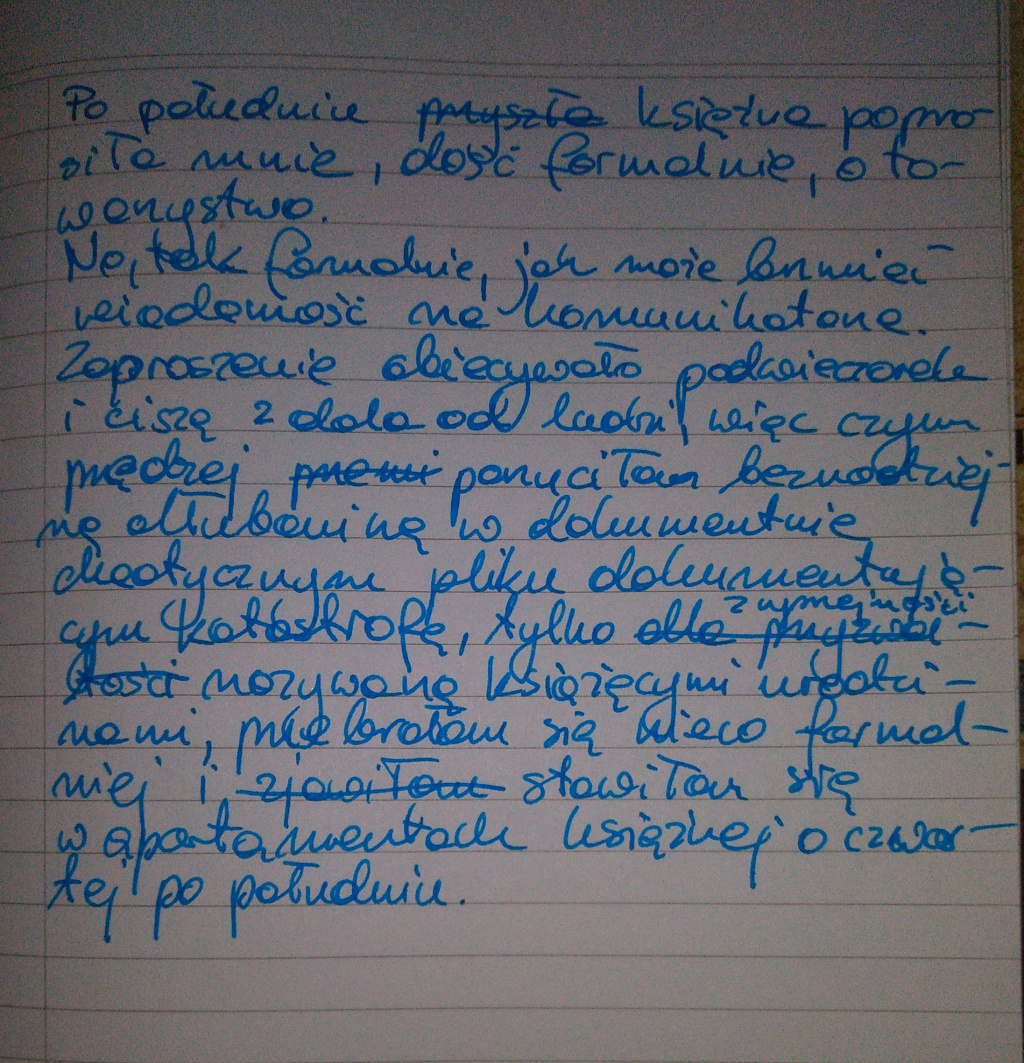 Po południu przyszła księżna popro-
siła mnie, dość formalnie, o to-
warzystwo.
No, tak formalnie, jak może brzmieć
wiadomość na komunikatorze.
Zaproszenie obiecywało podwieczorek
i ciszę z dala od ludzi, więc czym
prędzej przerwi porzuciłam beznadziej-
ną dłubaninę w dokumentnie
chaotycznym pliku dokumentują-
cym katastrofę, tylko dla przyzwoi-
z uprzejmości
tości nazywaną książęcymi urodzi-
nami, przebrałam się nieco formal-
niej i zjawiłam stawiłam się
w apartamentach księżnej o czwar-
tej po południu.